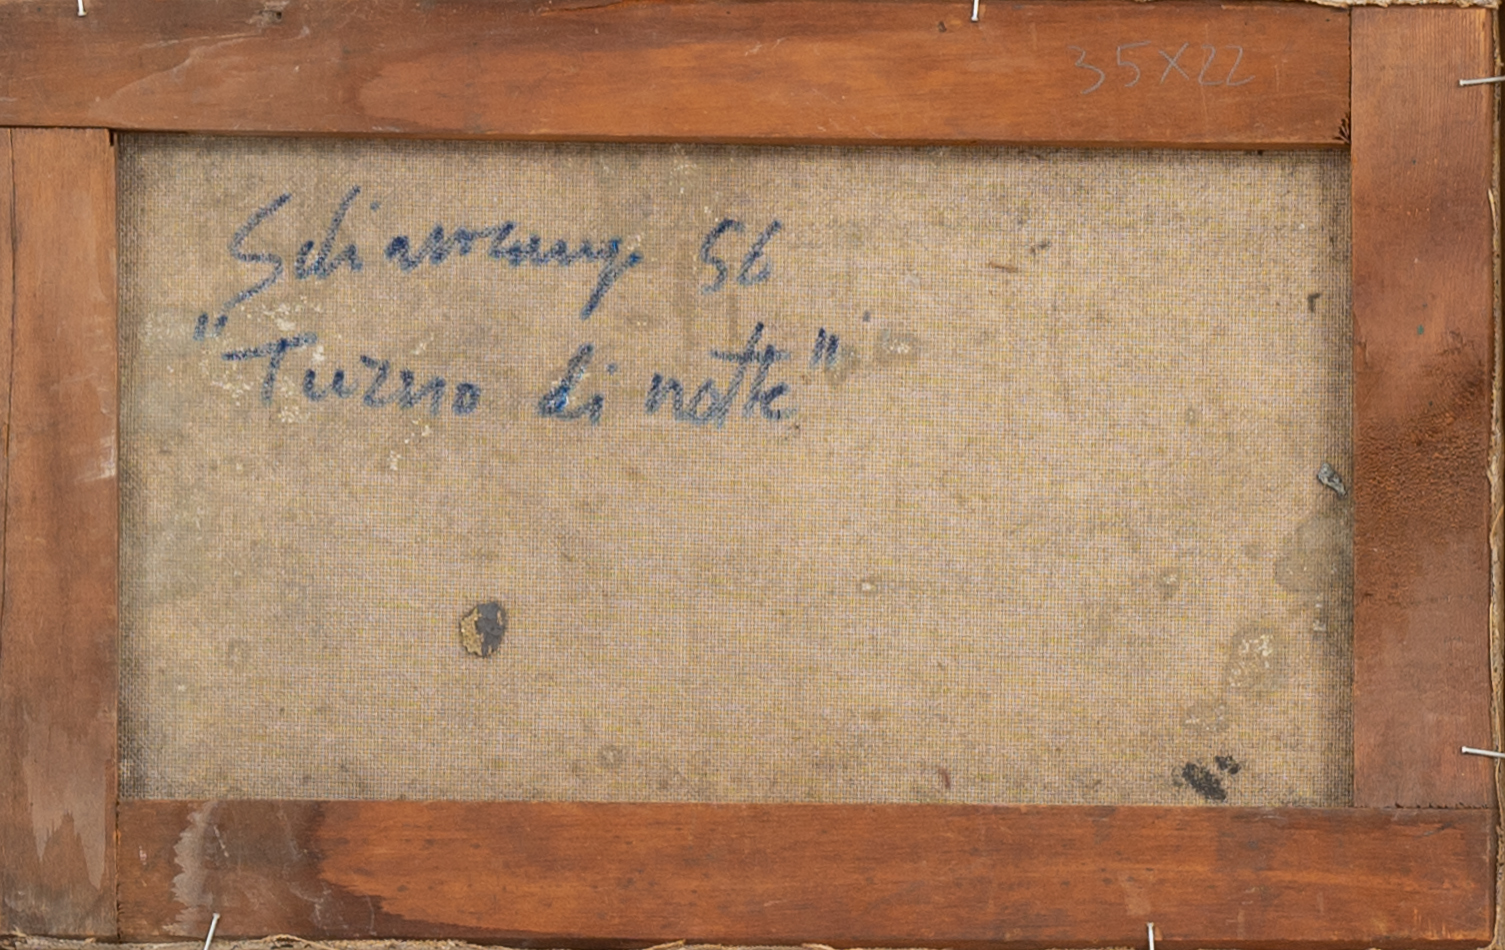 35X22
56
"Turno di notte"